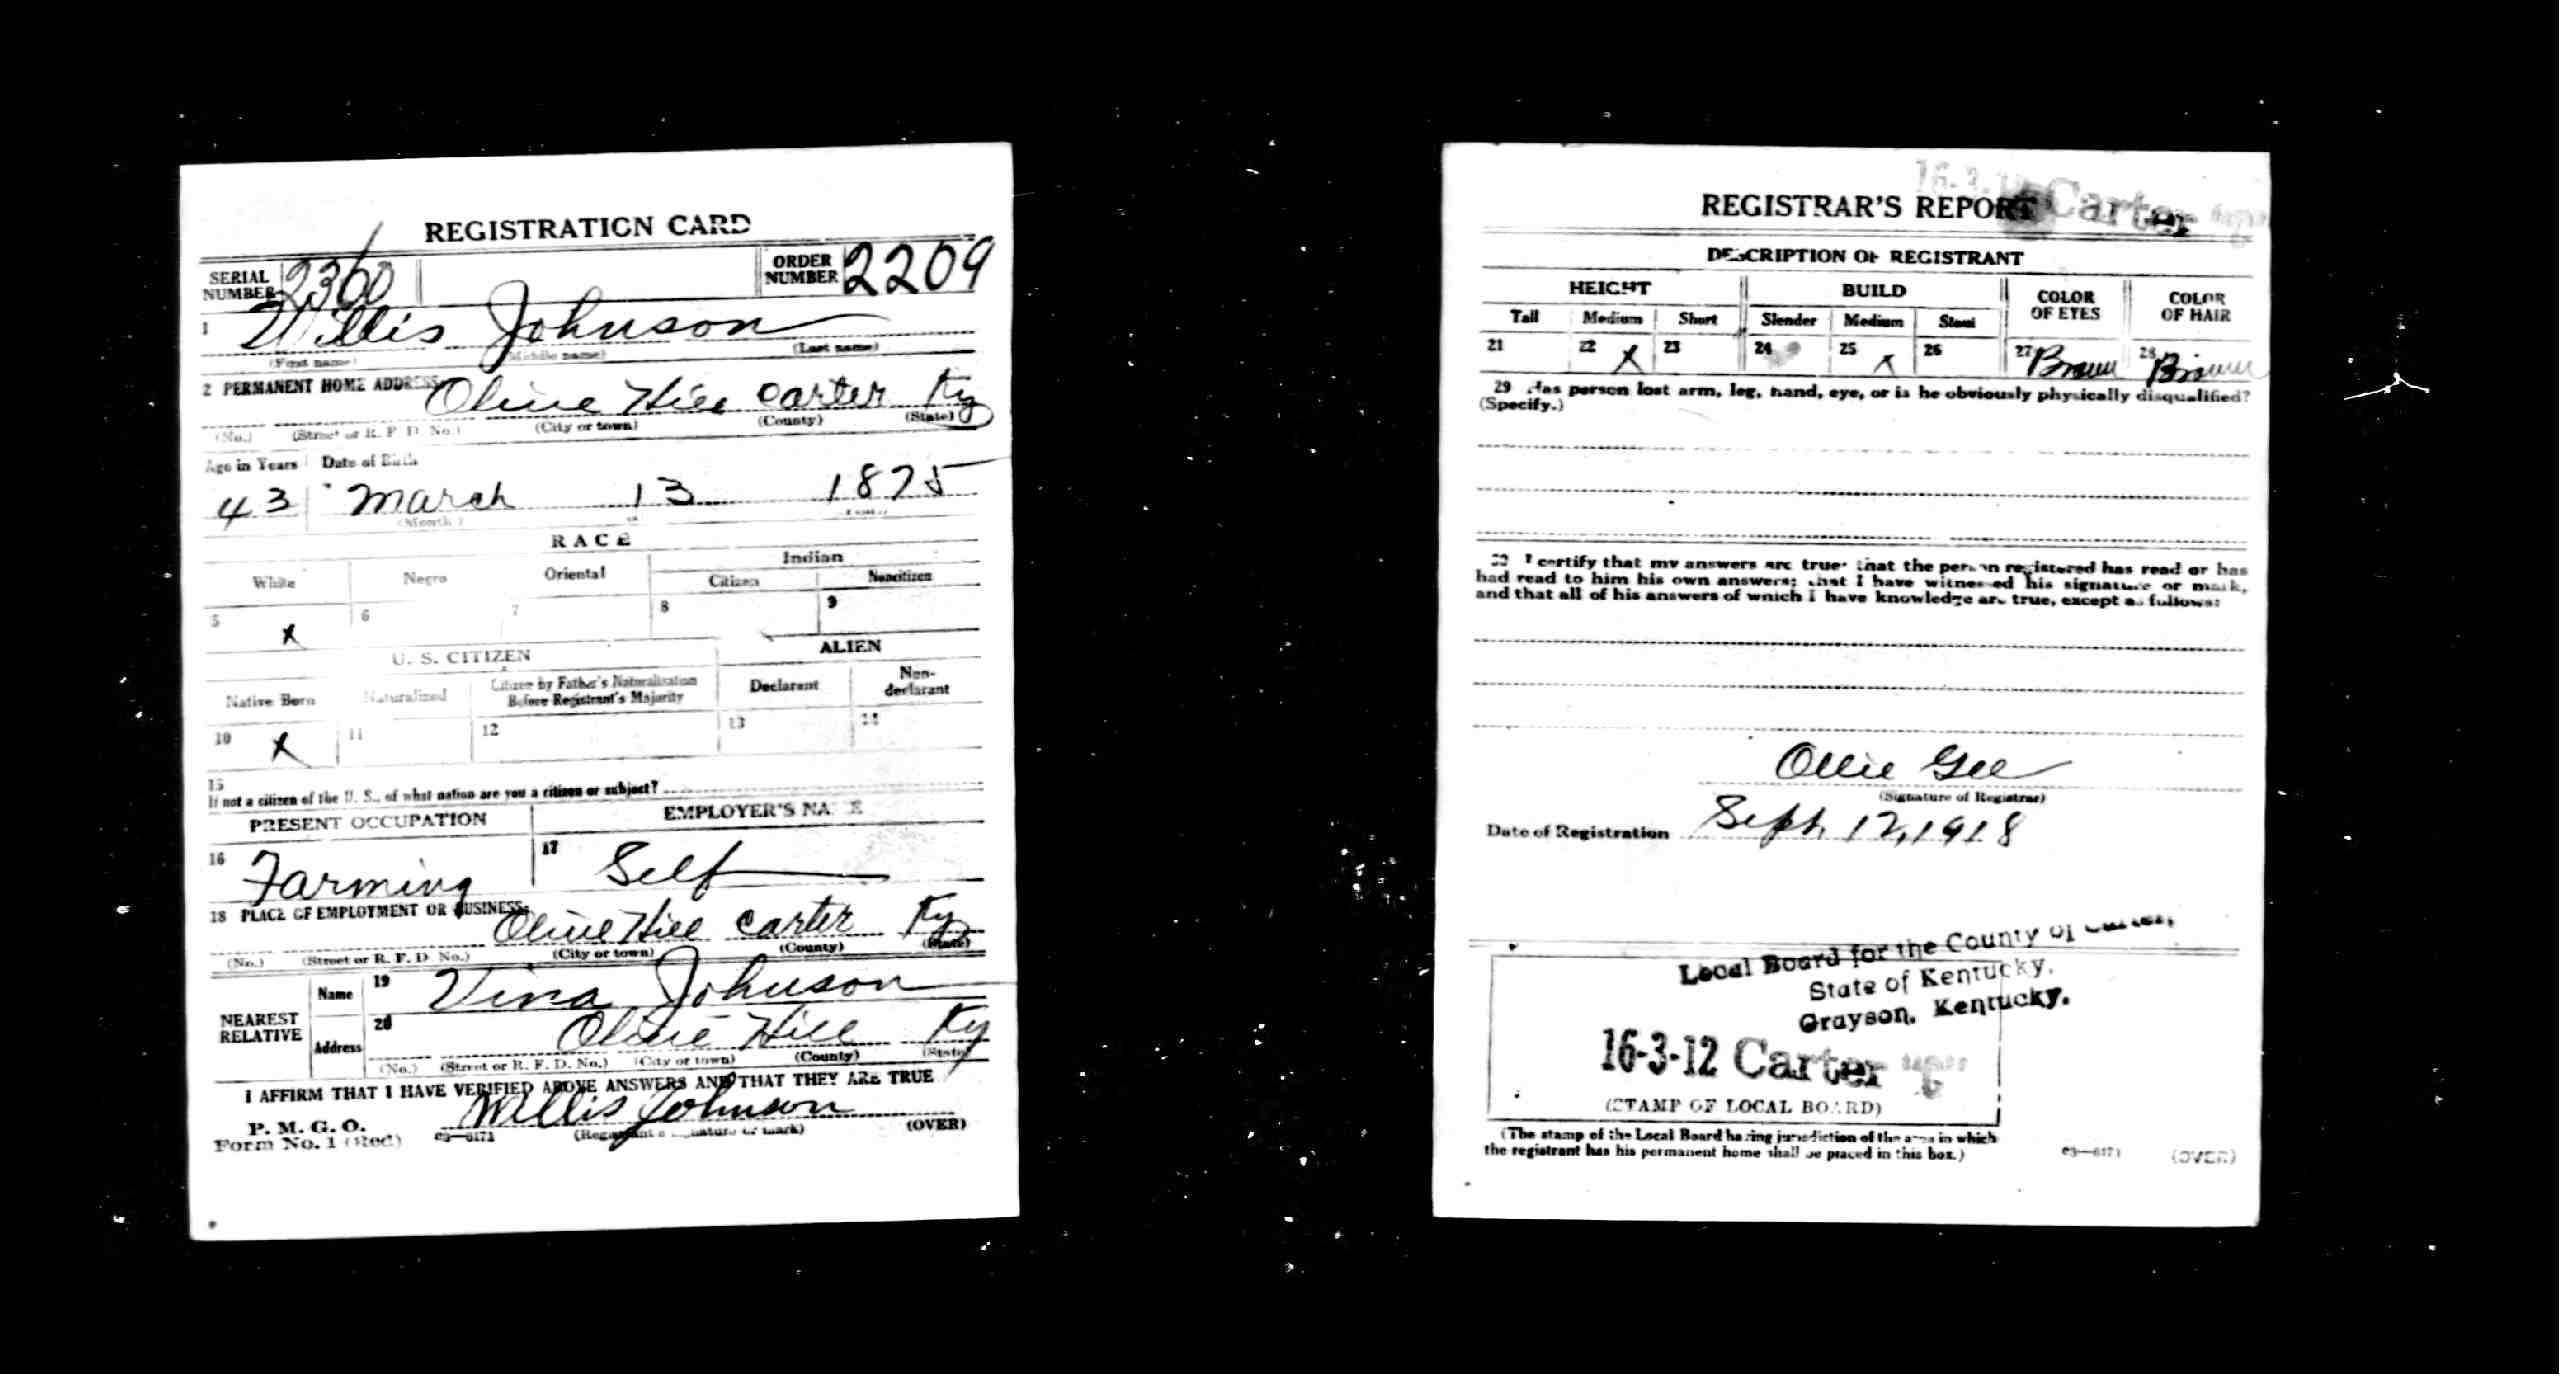 REGISTRATION CARD
SERIAL NUMBER 2360 ORDER NUMBER 2209
1 Willis Johnson
(First name) (Middle name) (Last name)
2 PERMANENT HOME ADDRESS:
Olive Hill Carter Ky
(No.) (Street or R. F. D. No.) (City or town) (County) (State)
Age in Years Date of Birth
43 March 13 1875
(Month)
RACE
White Negro Oriental Indian
Citizen Noncitizen
5 x 6 7 8 9
U. S. CITIZEN ALIEN
Native Born Naturalized Citizen by Father's Naturalization Before Registrant's Majority Declarant Non-declarant
10 x 11 12 13 14
15
If not a citizen of the U. S., of what nation are you a citizen or subject?
PRESENT OCCUPATION EMPLOYER'S NAME
16 Farming 17 Self
18 PLACE OF EMPLOYMENT OR BUSINESS:
Olive Hill Carter Ky
(No.) (Street or R. F. D. No.) (City or town) (County) (State)
NEAREST RELATIVE
Name 19 Vina Johnson
Address 20 Olive Hill Ky
(No.) (Street or R. F. D. No.) (City or town) (County) (State)
I AFFIRM THAT I HAVE VERIFIED ABOVE ANSWERS AND THAT THEY ARE TRUE
P. M. G. O.
Form No. 1 (Red) 03—6171 Willis Johnson
(Registrant's signature or mark) (OVER)
16-3-12 Carter
REGISTRAR'S REPORT
DESCRIPTION OF REGISTRANT
HEIGHT BUILD COLOR OF EYES COLOR OF HAIR
Tall Medium Short Slender Medium Stout
21 22 x 23 24 25 x 26 27 Brown 28 Brown
29 Has person lost arm, leg, hand, eye, or is he obviously physically disqualified?
(Specify.)
30 I certify that my answers are true; that the person registered has read or has
had read to him his own answers; that I have witnessed his signature or mark,
and that all of his answers of which I have knowledge are true, except as follows:
Ollie Gee
(Signature of Registrar)
Date of Registration Sept. 12, 1918
Local Board for the County of Carter,
State of Kentucky,
Grayson, Kentucky.
16-3-12 Carter
(STAMP OF LOCAL BOARD)
(The stamp of the Local Board having jurisdiction of the area in which
the registrant has his permanent home shall be placed in this box.)
03—6171 (OVER)